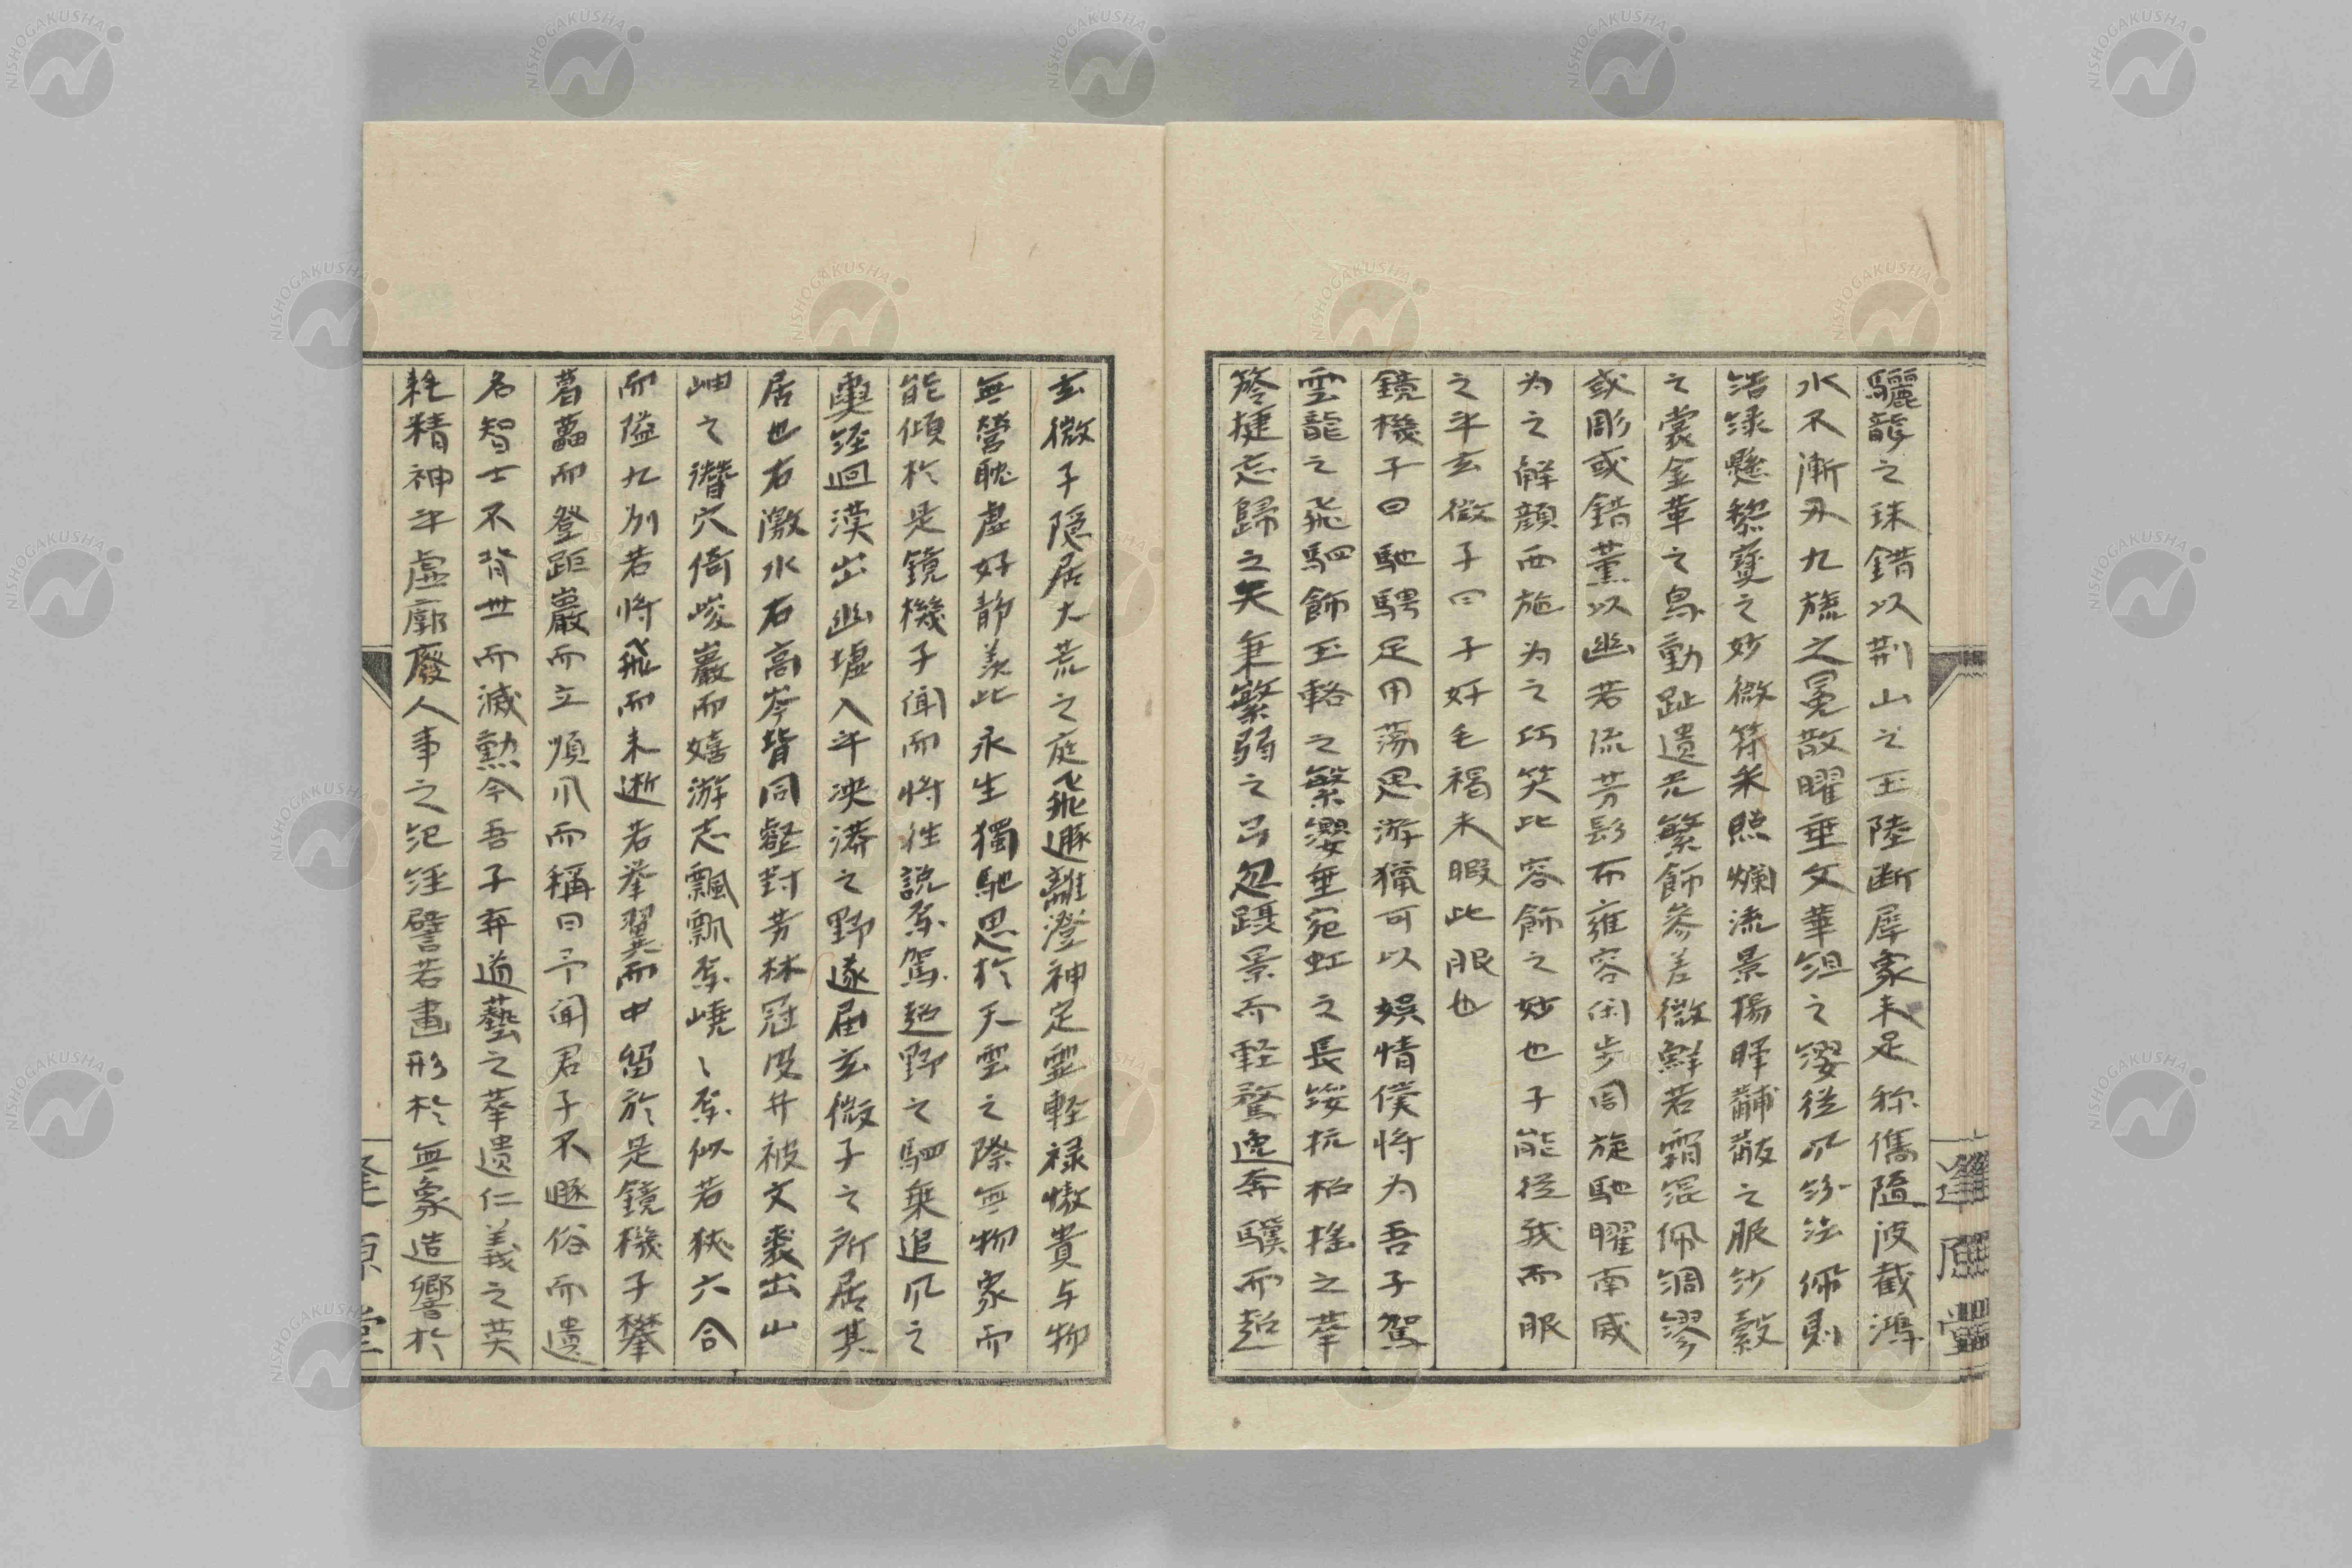 驪龍之珠錯以荊山之玉陸断犀象未足称儁隨波截鴻
水不漸刃九旒之冕散曜垂文華組之纓從風紛紜佩則
結緑懸黎寶之妙微符采照爛流景揚暉黼黻之服紗縠
之裳金華之舄動趾遺光繁飾參差微鮮若霜緄佩綢繆
或彫或錯薫以幽若流芳肆布雍容閑步周旋馳曜南威
為之解顔西施為之巧笑此容飾之妙也子能從我而服
之乎玄微子曰予好毛褐未暇此服也
鏡機子曰馳騁足用蕩思游獵可以娯情僕将为吾子駕
雲龍之飛駟飾玉輅之繁纓垂宛虹之長綏抗招揺之華
箊捷忘歸之矢秉繁弱之弓忽躡景而軽騖逸奔驥而超
逢原堂
玄微子隠居大荒之庭飛遯離澄神定霊軽禄傲貴与物
無營耽虚好静羨此永生獨馳思於天雲之際無物象而
能傾於是鏡機子聞而将往說焉駕超野之駟乗追風之
輿経迥漠出幽墟入乎泱漭之野遂届玄微子之所居其
居也左激水右高岑背洞壑對芳林冠皮弁被文裘出山
岫之潜穴倚峻巖而嬉游志飄飄焉嶢〻焉似若狹六合
而隘九州若将飛而未逝若挙翼而中留於是鏡機子攀
葛藟而登距巖而立順風而稱曰予聞君子不遯俗而遺
名智士不背世而滅勲今吾子弃道藝之華遺仁義之英
耗精神乎虚廓廢人事之紀経譬若畫形於無象造響於